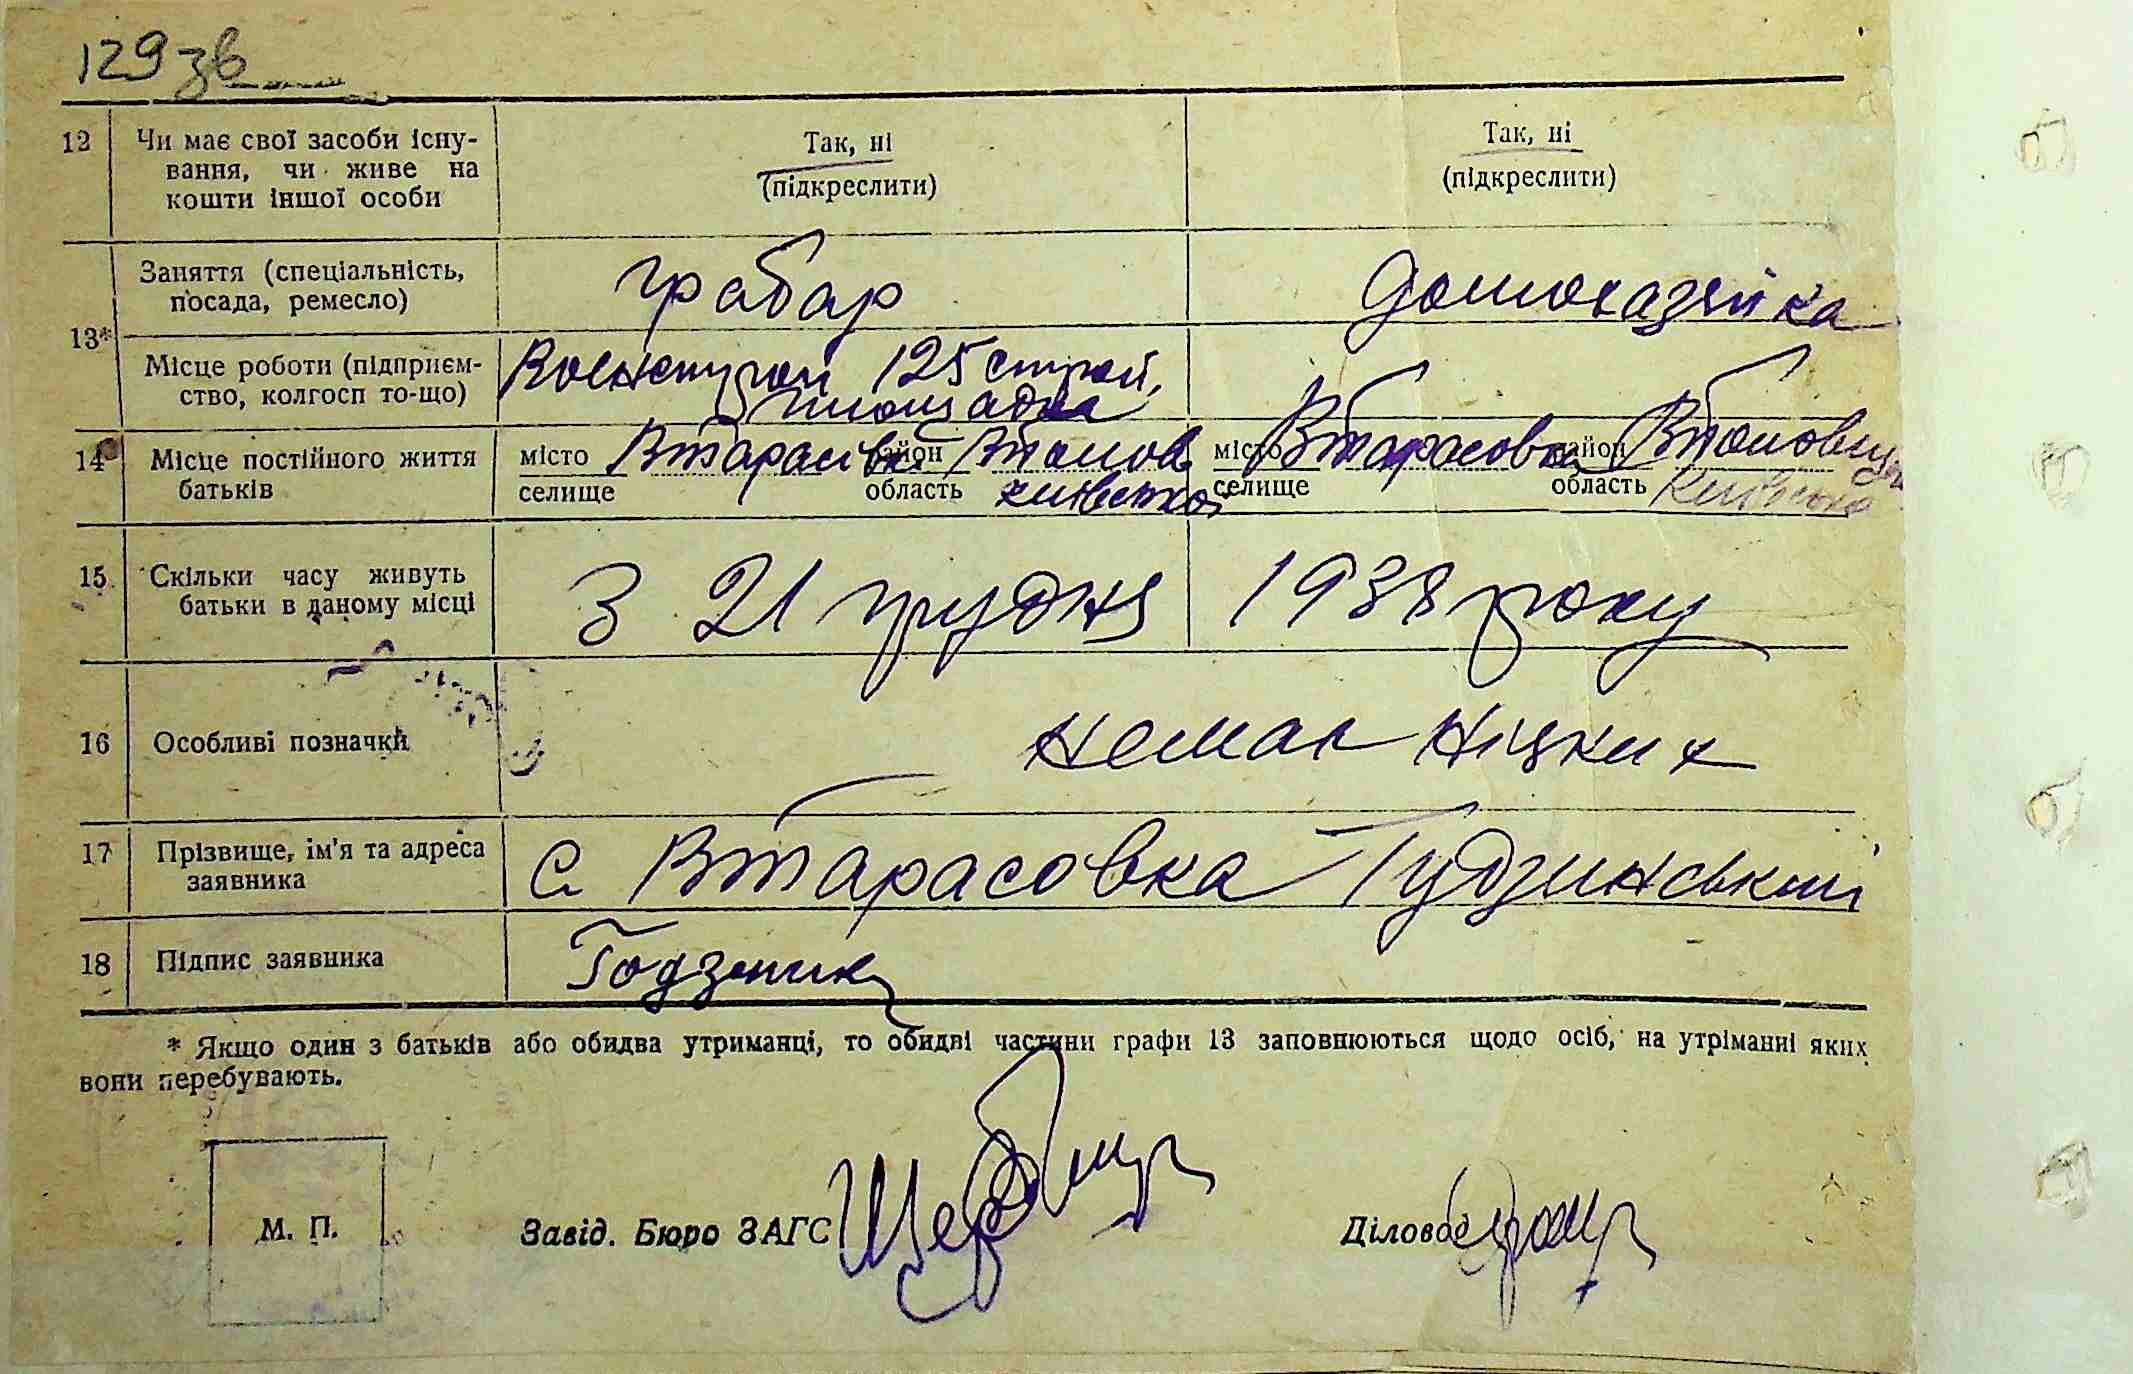 129 зв
12 Чи має свої засоби існу-
вання, чи живе на
кошти іншої особи
Так, ні
(підкреслити)
Так, ні
(підкреслити)
13*
Заняття (спеціальність,
посада, ремесло)
грабар
домохазяйка
Місце роботи (підприєм-
ство, колгосп то-що)
125 строй.
площадка
14 Місце постійного життя
батьків
місто Втарасівка район
селище область київської
місто Втарасовка район
селище область Київська
15. Скільки часу живуть
батьки в даному місці
З 21 грудня 1938 року
16 Особливі позначки
немає ніцких
17 Прізвище, ім'я та адреса
заявника
с Втарасовка Гудзинський
18 Підпис заявника
* Якщо один з батьків або обидва утриманці, то обидві частини графи 13 заповнюються щодо осіб, на утріманні яких
вони перебувають.
М. П.
Завід. Бюро ЗАГС
Діловод